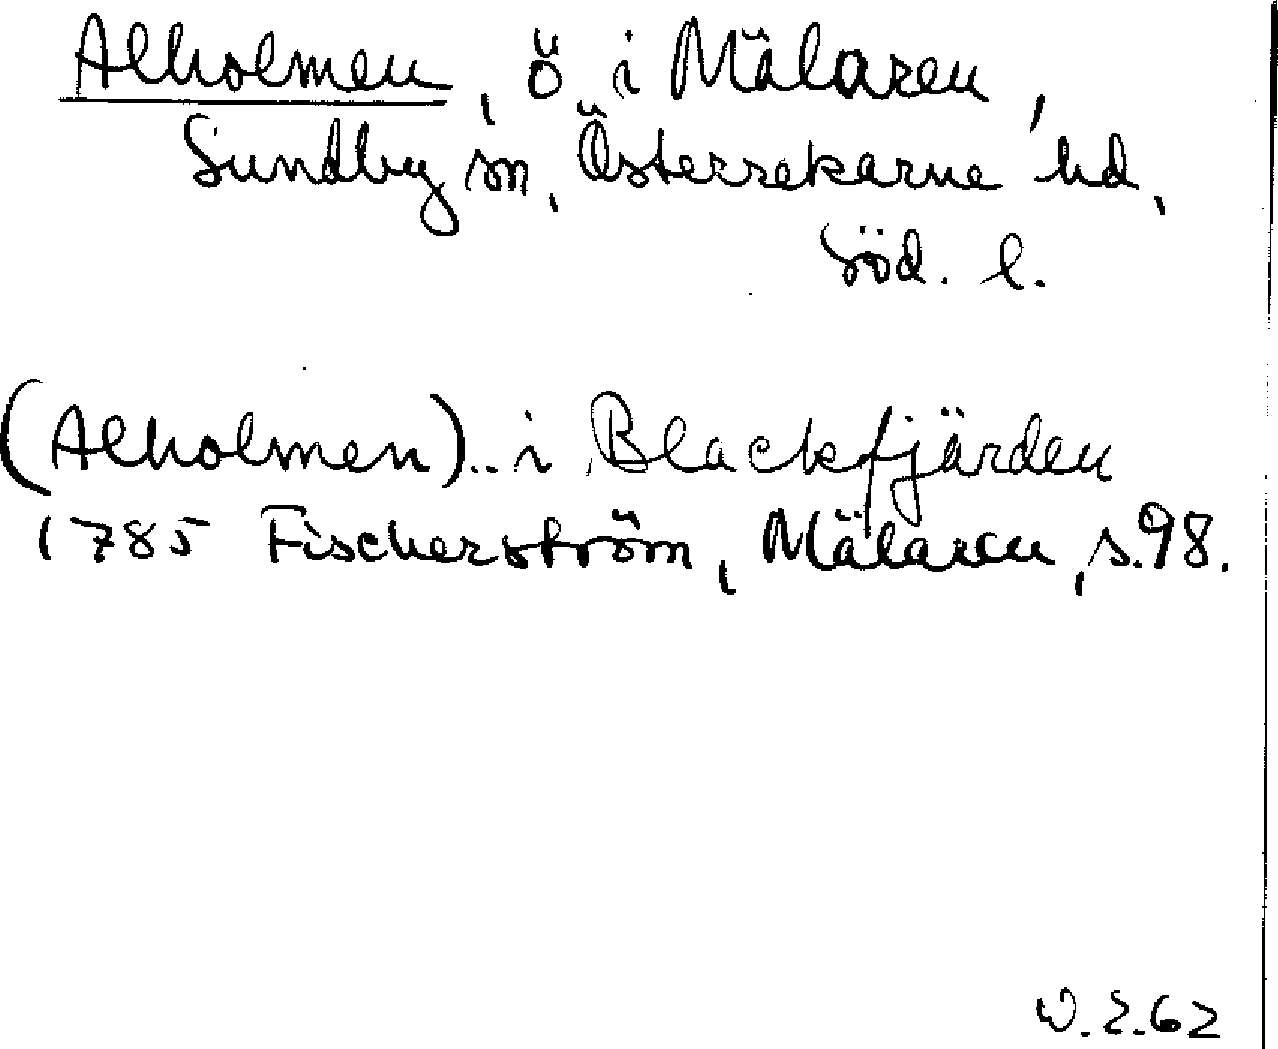 Alholmen, ö i Mälaren,
Sundby sn, Österrekarne hd,
Söd. l.
(Alholmen).. i Blackfjärden
1785 Fischerström, Mälaren, s. 98.
W. Z. 62